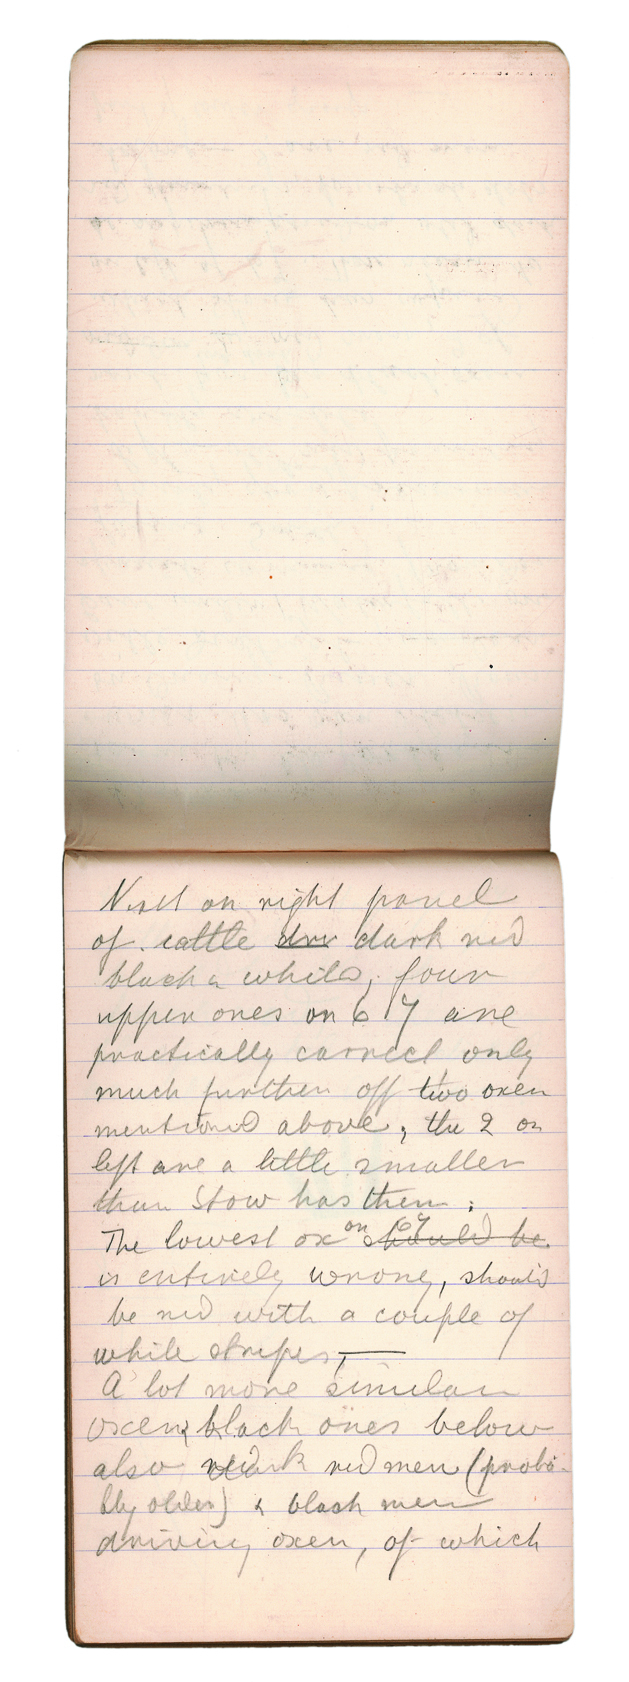 Next on right panel
of cattle drv dark red
black & white, four
upper ones on 67 are
practically correct only
much further off two oxen
mentioned above, the 2 on
left are a little smaller
than Stow has them;
The lowest ox on 67 should be
is entirely wrong, should
be red with a couple of
white stripes, —
A lot more similar
oxen, black ones below
also dark red men (proba-
bly older) & black men
driving oxen, of which